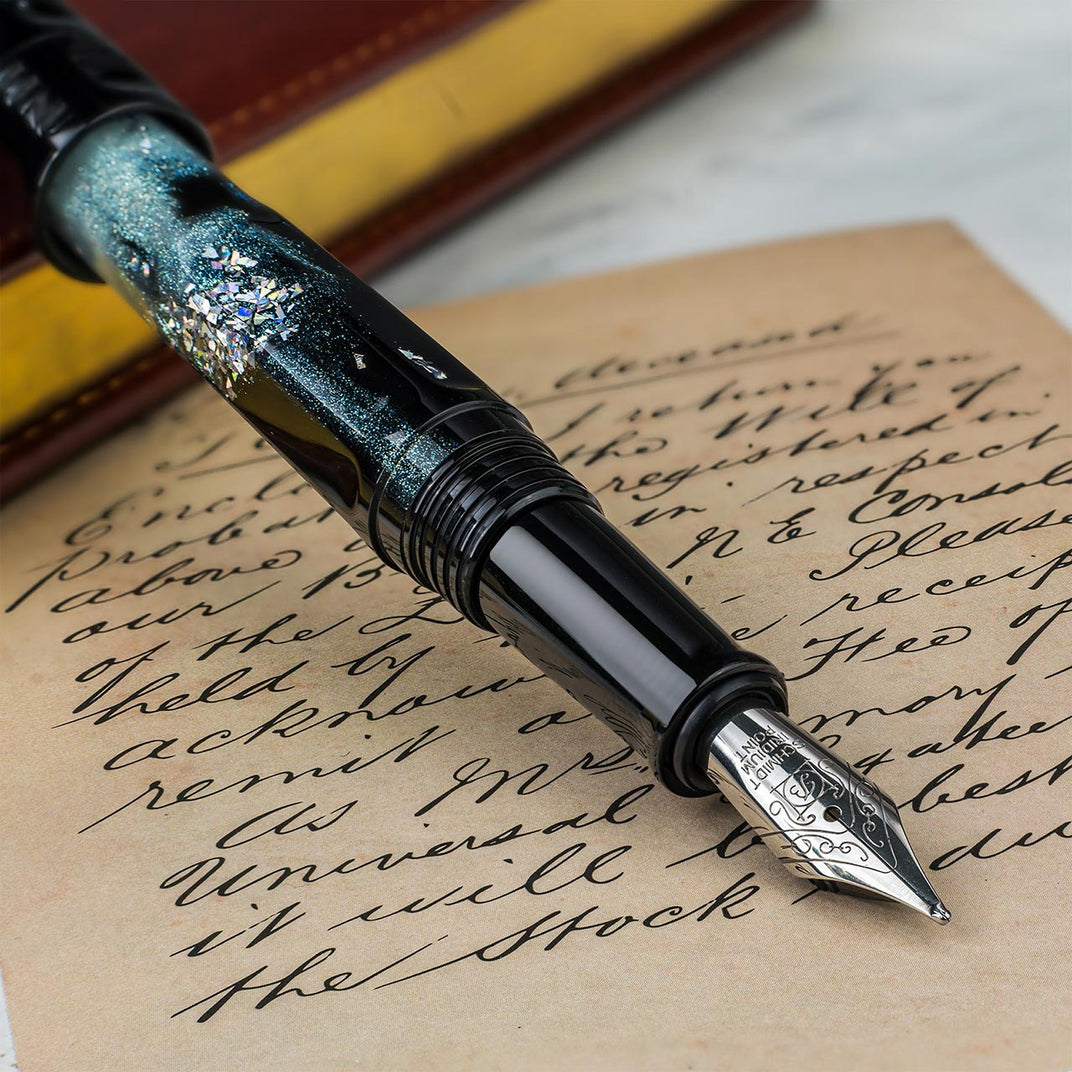 deceased
I return you
Enclo the Will of
probat registered in
above in respect
our B N E Consola
of the L Please
held by receip
acknow Fee of
remit a mory
as Mrs
Universal best
it will b
the Stock du
SCHMIDT
IRIDIUM
POINT
B